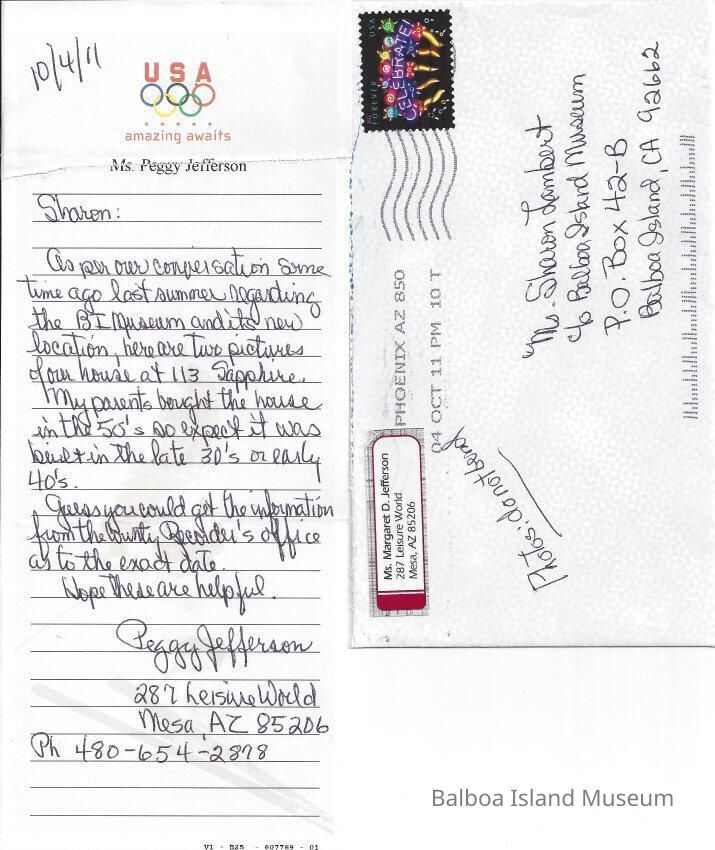 10/4/11
USA
amazing awaits
Ms. Peggy Jefferson
Sharon:
As per our conversation some
time ago last summer regarding
the BI Museum and its new
location, here are two pictures
of our house at 113 Sapphire.
My parents bought the house
in the 50's so expect it was
built in the late 30's or early
40's.
Guess you could get the information
from the County Recorder's office
as to the exact date.
Hope these are helpful.
Peggy Jefferson
287 Leisure World
Mesa, AZ 85206
Ph 480-654-2878
V1 - B25 - 607769 - 01
FOREVER USA
CELEBRATE!
PHOENIX AZ 850
04 OCT 11 PM 10 T
Ms. Margaret D. Jefferson
287 Leisure World
Mesa, AZ 85206
Photos: do not bend
Ms. Sharon Lambert
c/o Balboa Island Museum
P.O. Box 42-B
Balboa Island, CA 92662
Balboa Island Museum